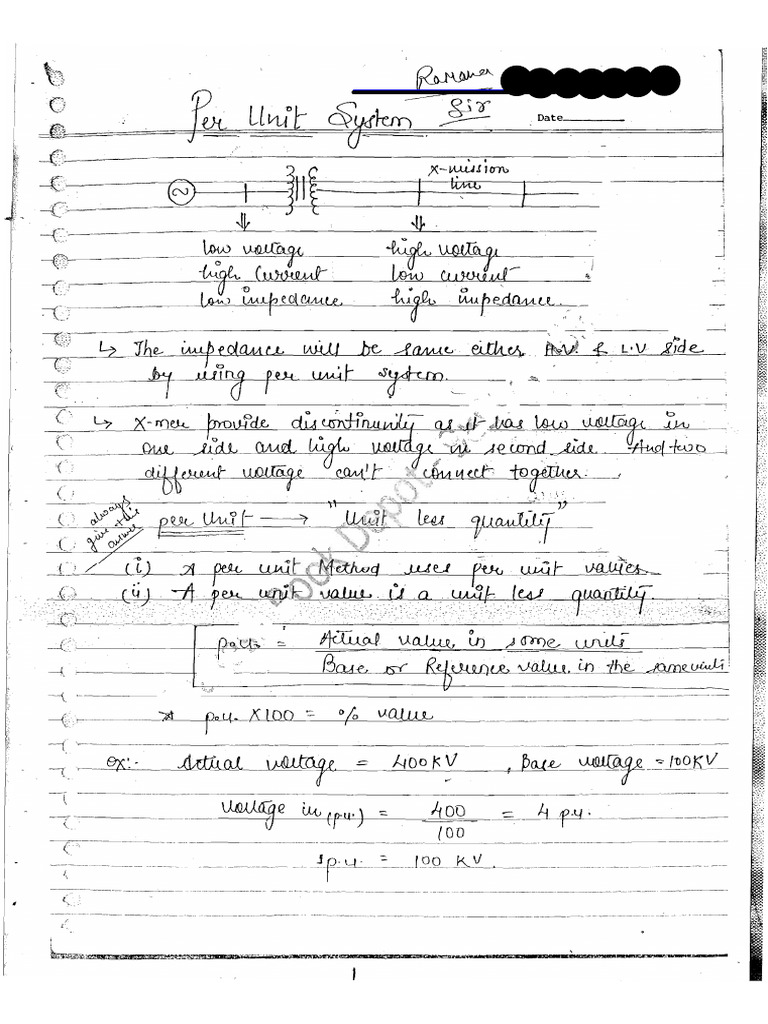 Ramana
Sir
Date
Per Unit System
X-mission
line
low voltage high voltage
high current low current
low impedance high impedance.
↳ The impedance will be same either H.V. & L.V side
by using per unit system.
↳ X-mer provide discontinunity as it has low voltage in
one side and high voltage in second side. And two
different voltage can't connect together.
always
give this
answer
per Unit ⟶ "Unit less quantity"
(i) A per unit Method uses per unit values
(ii) A per unit value is a unit less quantity.
p.u. = Actual value in some units
Base or Reference value in the same units
* p.u. X100 = % value
ex:- Actual voltage = 400KV , Base voltage = 100KV
voltage in (p.u.) = 400 = 4 p.u.
100
1p.u. = 100 KV.
Book Depot
1